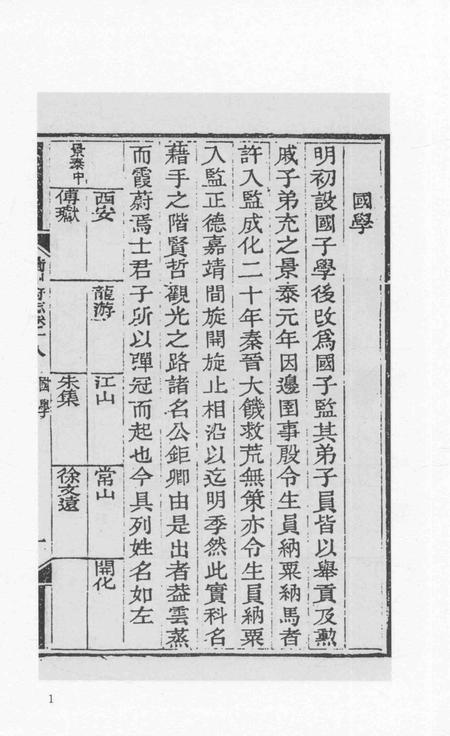 國學
明初設國子學後改爲國子監其弟子員皆以舉貢及勲
戚子弟充之景泰元年因邊圉事殷令生員納粟納馬者
許入監成化二十年秦晉大饑救荒無策亦令生員納粟
入監正德嘉靖間旋開旋止相沿以迄明季然此實科名
藉手之階賢哲觀光之路諸名公鉅卿由是出者葢雲蒸
而霞蔚焉士君子所以彈冠而起也今具列姓名如左
西安
龍游
江山
常山
開化
景泰中
傅嶽
朱集
徐文遠
府志卷十八
國學
一
1